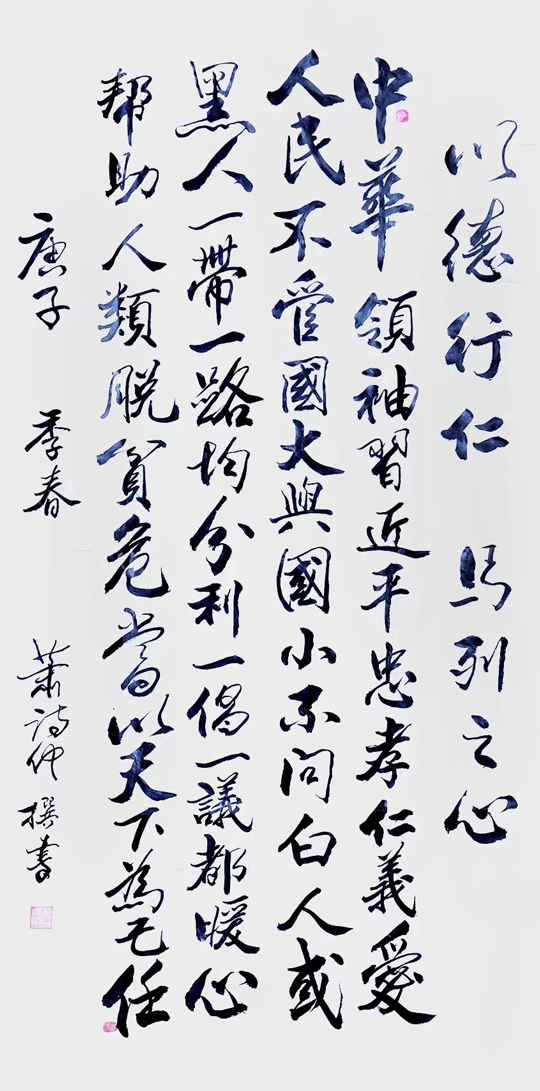 以德行仁 馬列之心
中華領袖習近平忠孝仁義愛
人民不管國大與國小不问白人或
黑人一帶一路均分利一倡一議都暖心
帮助人類脱貧危當以天下為己任
庚子 季春 蕭詩仲撰書